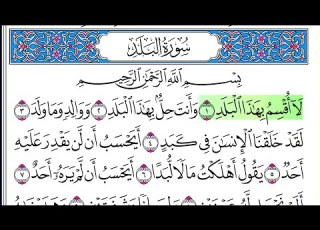 سُورَةُ البَلَدِ
بِسْمِ اللَّهِ الرَّحْمَٰنِ الرَّحِيمِ
لَا أُقْسِمُ بِهَٰذَا الْبَلَدِ ١ وَأَنتَ حِلٌّ بِهَٰذَا الْبَلَدِ ٢ وَوَالِدٍ وَمَا وَلَدَ ٣
لَقَدْ خَلَقْنَا الْإِنسَانَ فِي كَبَدٍ ٤ أَيَحْسَبُ أَن لَّن يَقْدِرَ عَلَيْهِ
أَحَدٌ ٥ يَقُولُ أَهْلَكْتُ مَالًا لُّبَدًا ٦ أَيَحْسَبُ أَن لَّمْ يَرَهُ أَحَدٌ ٧